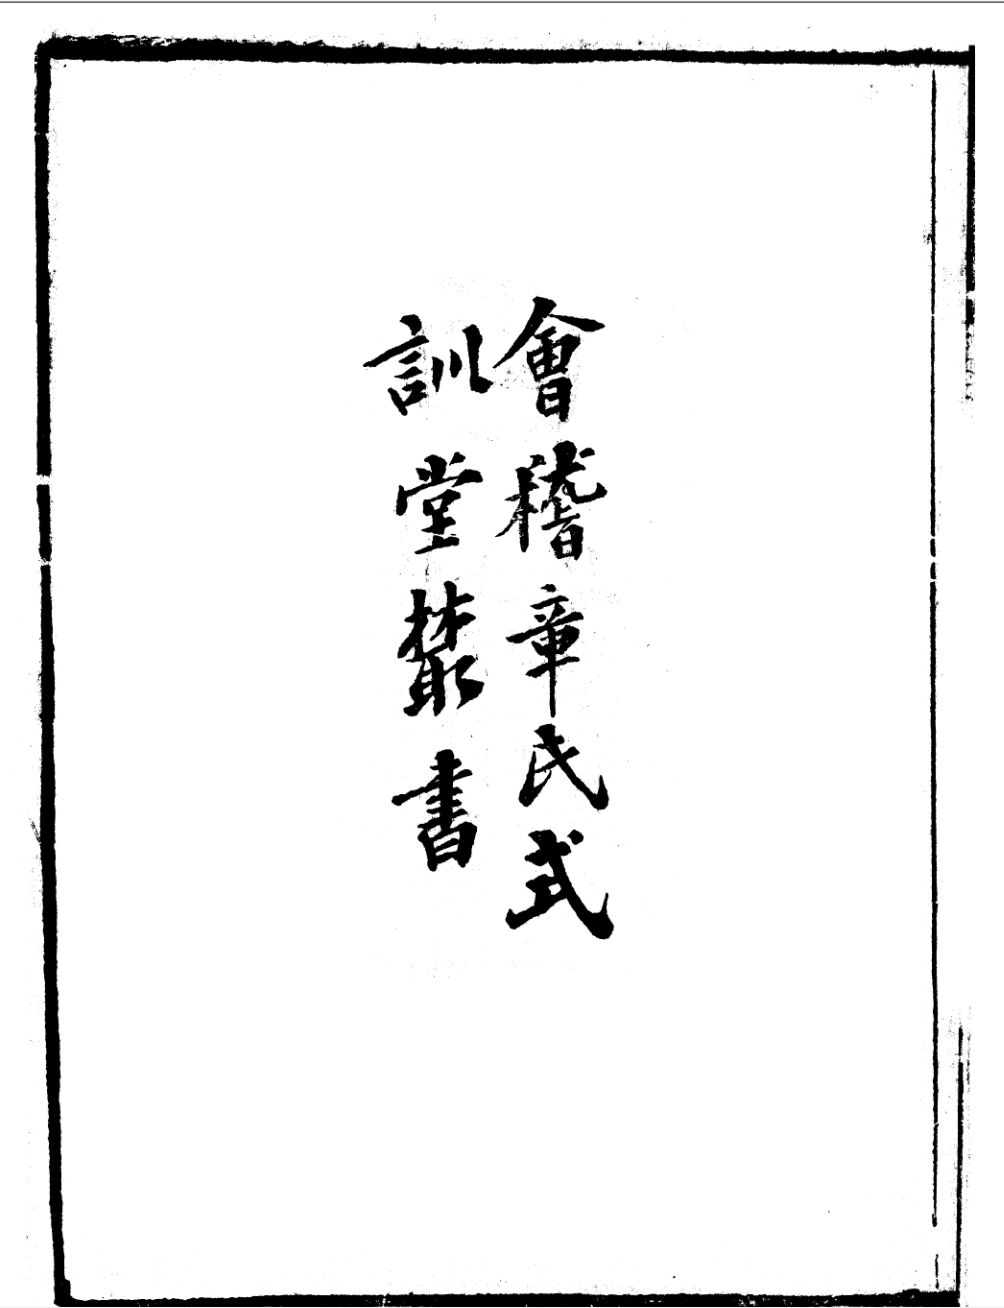 會稽章氏式
訓堂叢書